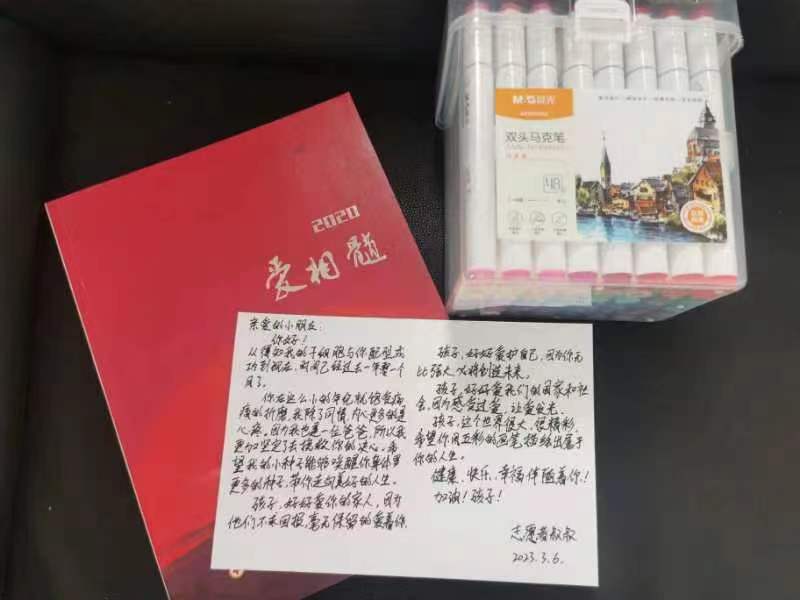 2020
爱相髓
M&G晨光
双头马克笔
48
亲爱的小朋友:
你好!
从得知我的干细胞与你配型成
功到现在,时间已经过去一年零一个
月了。
你在这么小的年纪就饱受病
痛的折磨,我除了同情,内心更多的是
心疼,因为我也是一位爸爸,所以我
更加坚定了去拯救你的决心,希
望我的小种子能够唤醒你身体里
更多的种子,带你走向美好的人生。
孩子,好好爱你的家人,因为
他们不求回报,毫无保留的爱着你,
孩子,好好爱护自己,因为你无
比强大,必将创造未来。
孩子,好好爱我们的国家和社
会,因为感受过爱,让爱发光。
孩子,这个世界很大,很精彩,
希望你用五彩的画笔描绘出属于
你的人生。
健康、快乐、幸福伴随着你!
加油!孩子!
志愿者叔叔
2023.3.6.